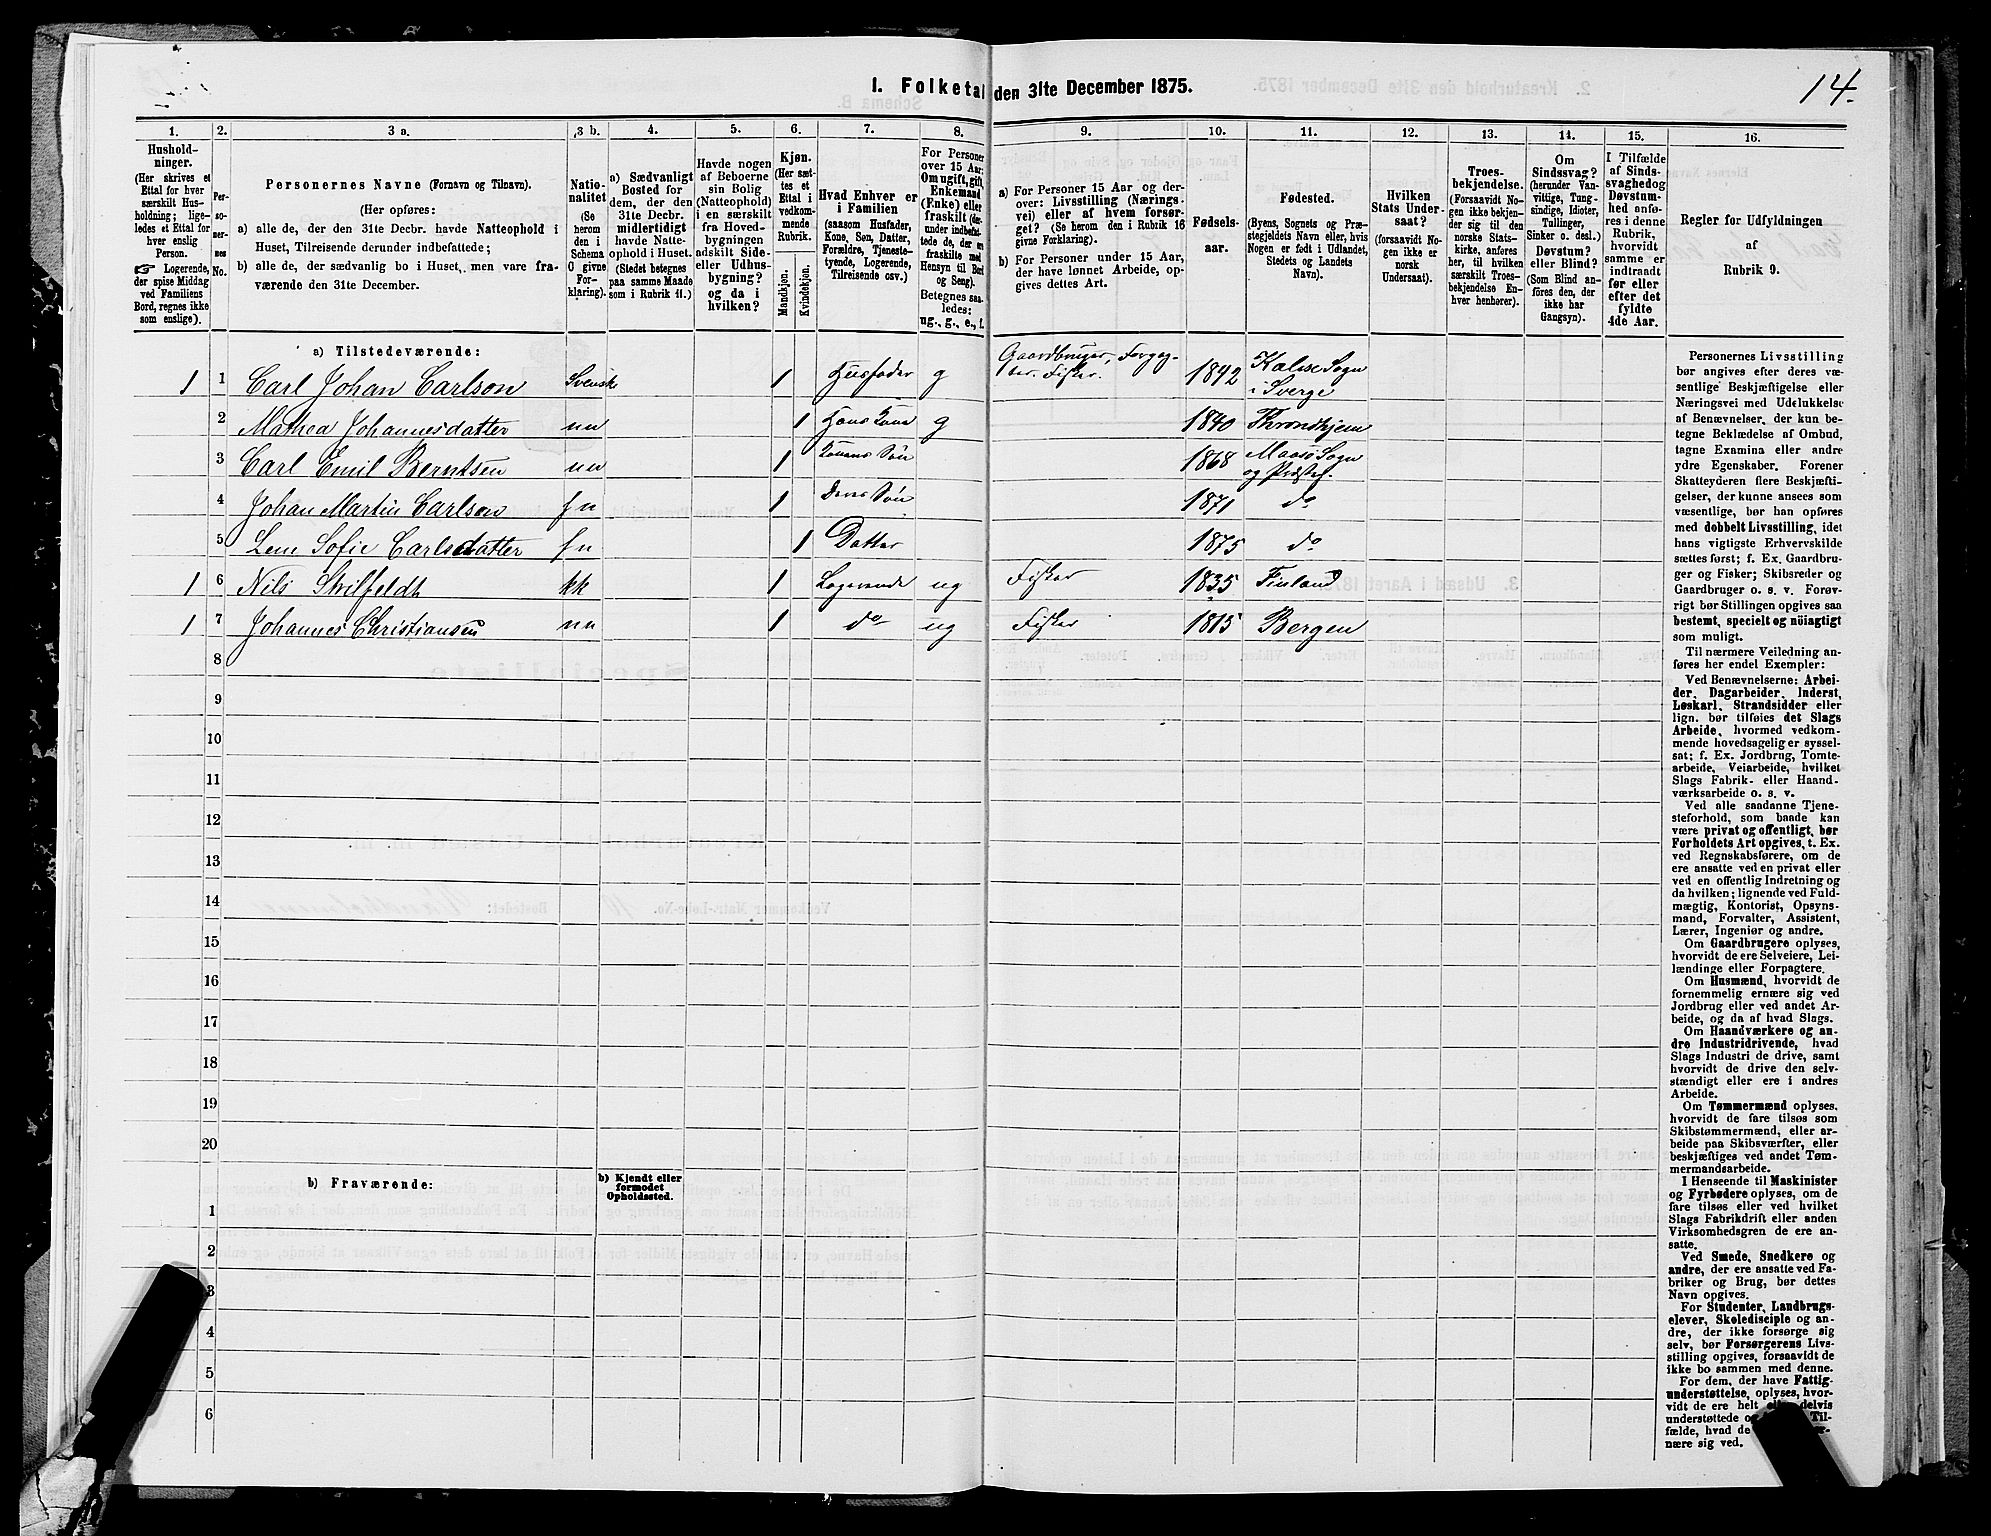 14.
I. Folketal den 31te December 1875.
1.
Hushold-
ninger.
(Her skrives et
Ettal for hver
særskilt Hus-
holdning; lige-
ledes et Ettal for
hver enslig
Person.
☞ Logerende,
der spise Middag
ved Familiens
Bord, regnes ikke
som enslige).
2.
Per-
so-
ner-
nes
No.
3 a.
Personernes Navne (Fornavn og Tilnavn).
(Her opføres:
a) alle de, der den 31te Decbr. havde Natteophold i
Huset, Tilreisende derunder indbefattede;
b) alle de, der sædvanlig bo i Huset, men vare fra-
værende den 31te December.
3 b.
Natio-
nalitet
(Se
herom
den i
Schema
C givne
For-
klaring).
4.
a) Sædvanligt
Bosted for
dem, der den
31te Decbr.
midlertidigt
havde Natte-
ophold i Huset.
(Stedet betegnes
paa samme Maade
som i Rubrik 11.)
5.
Havde nogen
af Beboerne
sin Bolig
(Natteophold)
i en særskilt
fra Hoved-
bygningen
adskilt Side-
eller Udhus-
bygning?
og da i
hvilken?
6.
Kjøn.
(Her sæt-
tes et
Ettal i
vedkom-
mende
Rubrik.
Mandkjøn.
Kvindekjøn.
7.
Hvad Enhver er
i Familien
(saasom Husfader,
Kone, Søn, Datter,
Forældre, Tjeneste-
tyende, Logerende,
Tilreisende osv.)
8.
For Personer
over 15 Aar:
Om ugift, gift,
Enkemand
(Enke) eller
fraskilt (der-
under indbefat-
tede de, der ere
fraskilte med
Hensyn til Bord
og Seng).
Betegnes saa-
ledes:
ug., g., e., f.
9.
a) For Personer 15 Aar og der-
over: Livsstilling (Nærings-
vei) eller af hvem forsør-
get? (Se herom den i Rubrik 16
givne Forklaring).
b) For Personer under 15 Aar,
der have lønnet Arbeide, op-
gives dettes Art.
10.
Fødsels-
aar.
11.
Fødested.
(Byens, Sognets og Præ-
stegjeldets Navn eller, hvis
Nogen er født i Udlandet,
Stedets og Landets
Navn).
12.
Hvilken
Stats Under-
saat?
(forsaavidt No-
gen ikke er
norsk
Undersaat).
13.
Troes-
bekjendelse.
(Forsaavidt No-
gen ikke bekjen-
der sig til den
norske Stats-
kirke, anføres
her, til hvilken
særskilt Troes-
bekjendelse En-
hver henhører).
14.
Om
Sindssvag?
(herunder Van-
vittige, Tung-
sindige, Idioter,
Tullinger,
Sinker o. desl.)
Døvstum?
eller Blind?
(Som Blind an-
føres den, der
ikke har
Gangsyn).
15.
I Tilfælde
af Sinds-
svaghed og
Døvstum-
hed anfø-
res i denne
Rubrik,
hvorvidt
samme er
indtraadt
før eller
efter det
fyldte
4de Aar.
16.
Regler for Udfyldningen
af
Rubrik 9.
a) Tilstedeværende:
1 1 Carl Johan Carlson Svensk 1 Husfader g Gaardbruger, Forpag-ter. Fisker. 1842 Sogn i Sverge
2 Mathea Johannesdatter nn 1 Hans Kone g 1840 Throndhjem
3 Carl Emil Berntsen nn 1 Konens Søn 1868 Maasø Sogn og Præstgj.
4 Johan Martin Carlson fn 1 Deres Søn 1871 do
5 Sofie Carlsdatter fn 1 Datter 1875 do
1 6 Nils kk 1 Logerende ug Fisker 1835 Finland
1 7 Johannes Christiansen nn 1 do ug Fisker 1815 Bergen
8
9
10
11
12
13
14
15
16
17
18
19
20
b) Fraværende:
b) Kjendt eller
formodet
Opholdssted.
1
2
3
4
5
6
Personernes Livsstilling
bør angives efter deres væ-
sentlige Beskjæftigelse eller
Næringsvei med Udelukkelse
af Benævnelser, der kun be-
tegne Beklædelse af Ombud,
tagne Examina eller andre
ydre Egenskaber. Forener
Skatteyderen flere Beskjæfti-
gelser, der kunne ansees som
væsentlige, bør han opføres
med dobbelt Livsstilling, idet
hans vigtigste Erhvervskilde
sættes først; f. Ex. Gaardbru-
ger og Fisker; Skibsreder og
Gaardbruger o. s. v. Forøv-
rigt bør Stillingen opgives saa
bestemt, specielt og nöiagtigt
som muligt.
Til nærmere Veiledning an-
føres her endel Exempler:
Ved Benævnelserne: Arbei-
der, Dagarbeider, Inderst,
Løskarl, Strandsidder eller
lign. bør tilføies det Slags
Arbeide, hvormed vedkom-
mende hovedsagelig er syssel-
sat; f. Ex. Jordbrug, Tomte-
arbeide, Veiarbeide, hvilket
Slags Fabrik- eller Haand-
værksarbeide o. s. v.
Ved alle saadanne Tjene-
steforhold, som baade kan
være privat og offentligt, bør
Forholdets Art opgives, f. Ex.
ved Regnskabsførere, om de
ere ansatte ved en privat eller
ved en offentlig Indretning og
da hvilken; lignende ved Fuld-
mægtig, Kontorist, Opsyns-
mand, Forvalter, Assistent,
Lærer, Ingeniør og andre.
Om Gaardbrugere oplyses,
hvorvidt de ere Selveiere, Lei-
lændinge eller Forpagtere.
Om Husmænd, hvorvidt de
fornemmelig ernære sig ved
Jordbrug eller ved andet Ar-
beide, og da af hvad Slags.
Om Haandværkere og an-
dre Industridrivende, hvad
Slags Industri de drive, samt
hvorvidt de drive den selv-
stændigt eller ere i andres
Arbeide.
Om Tømmermænd oplyses,
hvorvidt de fare tilsøs som
Skibstømmermænd, eller ar-
beide paa Skibsværfter, eller
beskjæftiges ved andet Tøm-
mermandsarbeide.
I Henseende til Maskinister
og Fyrbødere oplyses, om de
fare tilsøs eller ved hvilket
Slags Fabrikdrift eller anden
Virksomhedsgren de ere an-
satte.
Ved Smede, Snedkere og
andre, der ere ansatte ved Fa-
briker og Brug, bør dettes
Navn opgives.
For Studenter, Landbrugs-
elever, Skoledisciple og an-
dre, der ikke forsørge sig
selv, bør Forsørgerens Livs-
stilling opgives, forsaavidt de
ikke bo sammen med denne.
For dem, der have Fattig-
understøttelse, oplyses, hvor-
vidt de ere helt delvis
understøttede Til-
fælde, hvad de
nære sig ved.